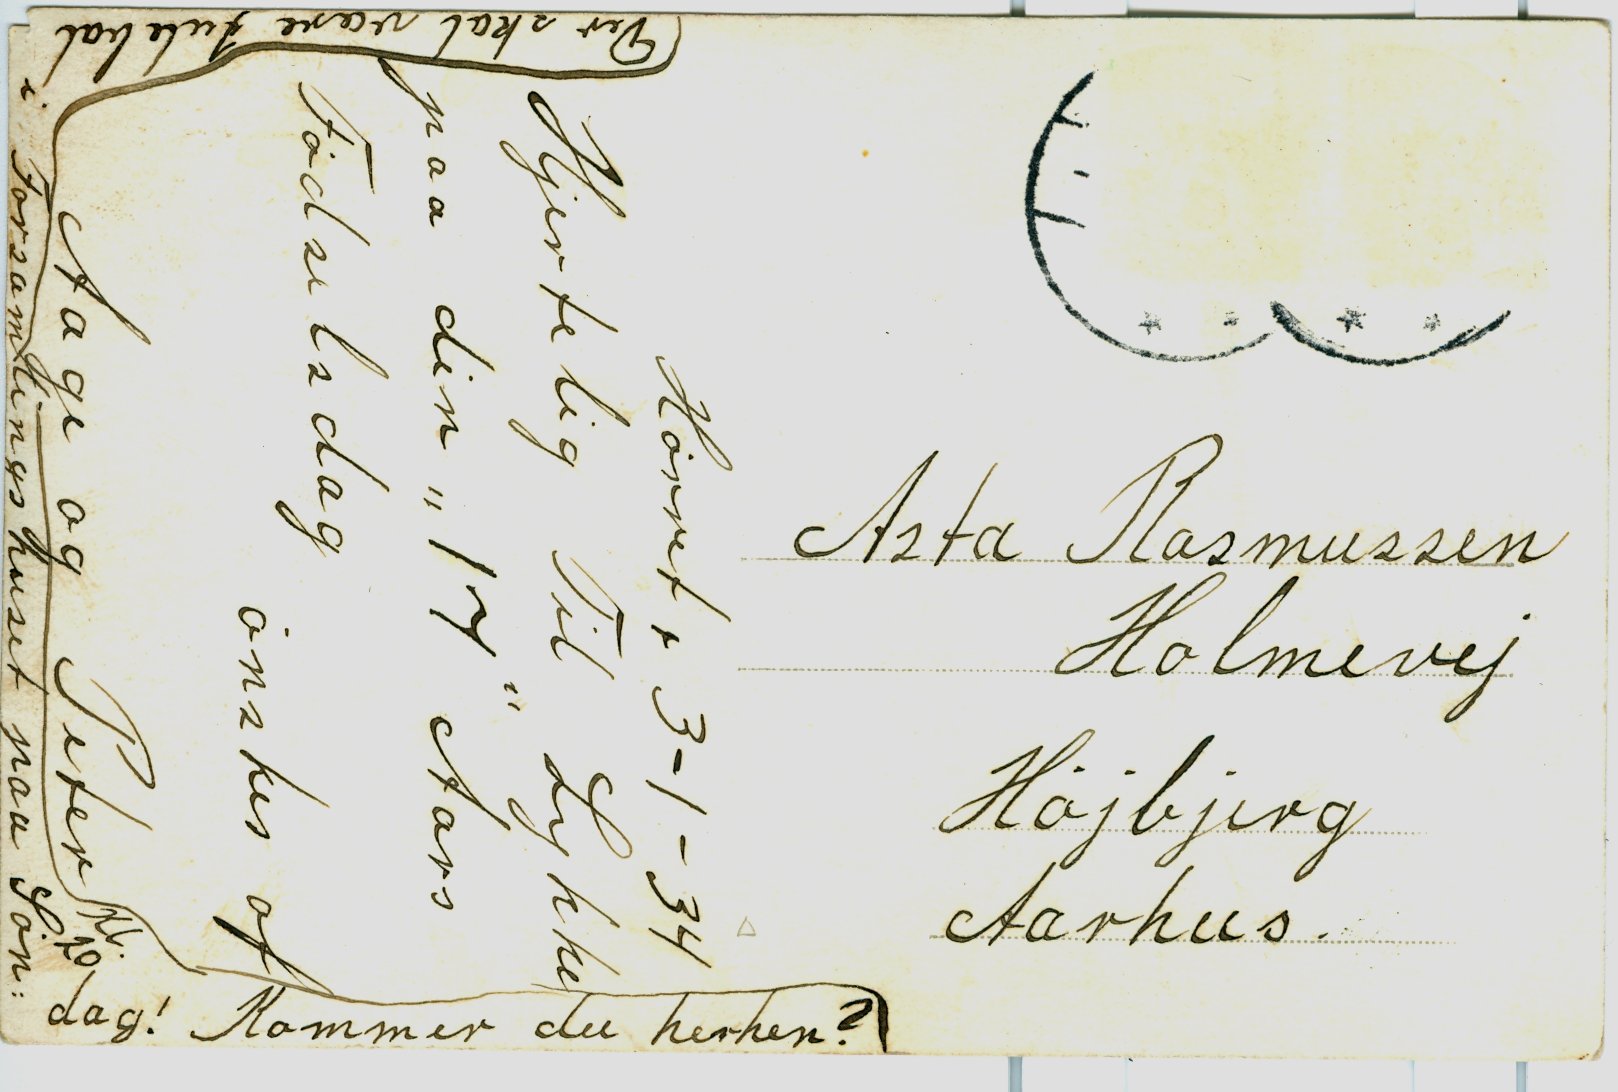 Hørret, 3-1-34
Hjertelig Til Lykke
paa din "17" Aars
Fødselsdag
ønskes af
Aage og Peter
Der skal være Julebal
i Forsamlingshuset paa Søn:
dag! Kommer du herhen?
Kl.
Asta Rasmussen
Holmevej
Højbjerg
Aarhus.